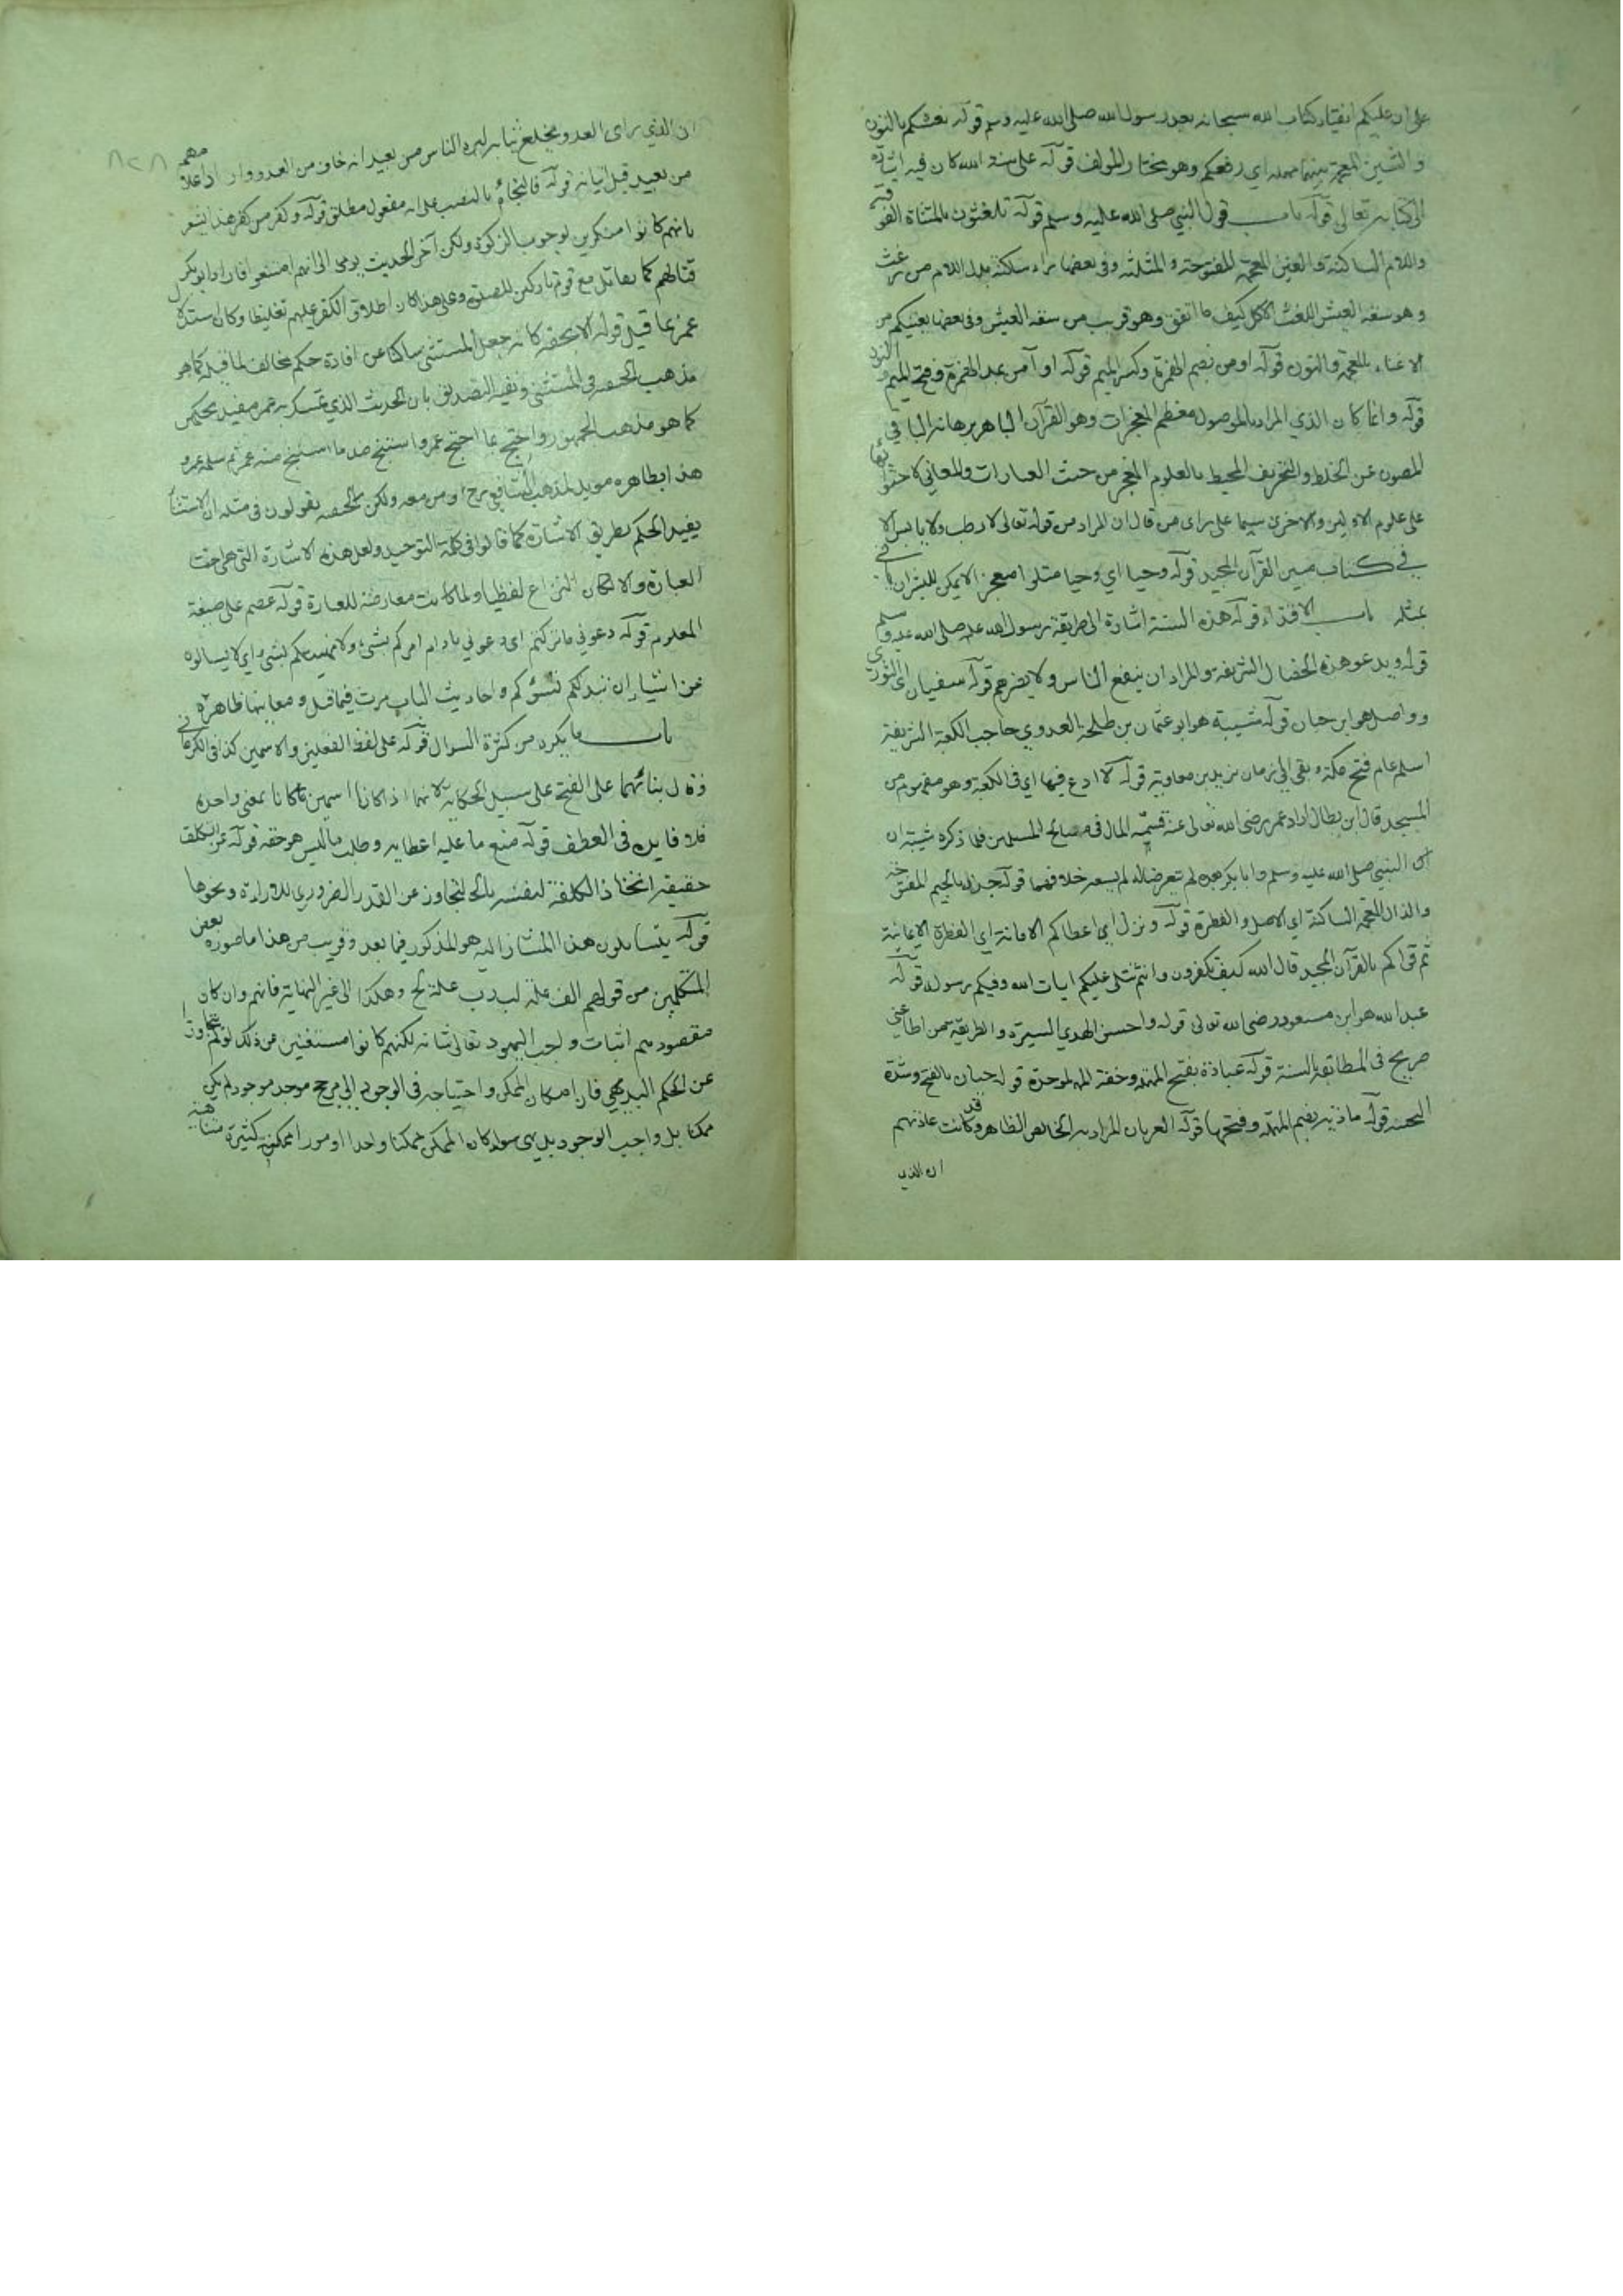 على ان عليكم انقياد كتاب الله سبحانه بعد رسول الله صلى الله عليه وسلم قوله نعشكم بالنون
والشين المعجمة بينهما مهملة اي رفعكم وهو مختار المولف قوله على سنة الله كان فيه اشارة
الى كتابه تعالى قوله باب قول النبي صلى الله عليه وسلم قوله تلغثون بالمثناة الفوقية
واللام الساكنة والغين المعجمة المفتوحة والمثلثة وفي بعضها براء ساكنة بدل اللام من رغث
وهو سعة العيش اللغث الاكل كيف ما اتفق وهو قريب من سعة العيش وفي بعضها يغنيكم من
الاغناء بالمعجمة والنون قوله اومن بضم الهمزة وكسر الميم قوله او آمن بمد الهمزة وفتح الميم والنون
قوله وانما كان الذي المراد بالموصول معظم المعجزات وهو القرآن الباهر برهانه الباقي
المصون عن الخلط والتحريف المحيط بالعلوم المعجز من حيث العبارات والمعاني
على علوم الاولين والاخرين سيما على راى من قال ان المراد من قوله تعالى لا رطب ولا يابس الا
في كتاب مبين القرآن المجيد قوله وحيا اي وحيا متلوا معجزا لا يمكن للبشر ان ياتي
بمثله باب الاقتداء قوله هذه السنة اشارة الى طريقة رسول الله صلى الله عليه وسلم
قوله ويدعو هذه الخصال الشريفة والمراد ان ينفع الناس ولا يضرهم قوله سفيان اى الثوري
وواصل هو ابن حبان قوله شيبة هو ابو عثمان بن طلحة العدوي حاجب الكعبة الشريفة
اسلم عام فتح مكة وبقي الى زمان يزيد بن معاوية قوله لا ادع فيها اي في الكعبة وهو مفهوم من
المسجد قال ابن بطال اراد عمر رضى الله تعالى عنه قسمة المال في مصالح المسلمين فلما ذكره شيبة ان
ان النبي صلى الله عليه وسلم وابا بكر بعده لم يتعرضا له لم يسعه خلافهما قوله جذر بالجيم المفتوحة
والذال المعجمة الساكنة اي الاصل والفطرة قوله ونزل اي اعطاكم الامانة اي الفطرة الايمانية
ثم قراكم بالقرآن المجيد قال الله كيف تكفرون وانتم تتلى عليكم ايات الله وفيكم رسوله قوله
عبد الله هو ابن مسعود رضى الله تعالى قوله واحسن الهدي السيرة والطريقة من اطاعني
صريح في المطابقة بالسنة قوله عبادة بفتح المهملة وخفة الموحدة قوله حيان بالفتح وشدة
التحتية قوله مادبة بضم المهملة وفتحها قوله العريان المراد به الخالص الظاهر وقد كانت عادتهم
ان الذي
ان الذي راى العدو يخلع ثيابه ليره الناس من بعيد انه خاف من العدو وار
من بعيد قبل اتيانه قوله فالنجاء بالنصب على انه مفعول مطلق قوله وكفر من كفر هذا يشعر
بانهم كانوا منكرين لوجوب الزكوة ولكن آخر الحديث يومى الى انهم امتنعوا فاراد ابو بكر
قتالهم كما يقاتل مع قوم تاركين للصلوة وعلى هذا كان اطلاق الكفر عليهم تغليظا وكان استدلال
عمر بما قيل قوله الا بحقه كانه جعل المستثنى ساكتا عن افادة حكم مخالف لما قبله كما هو
مذهب الحنفية في المستثنى ونفيه التصديق بان الحديث الذي تمسك به عمر مفيد بحكمين
كما هو مذهب الجمهور واحتج بما احتج عمر واستنتج ضد ما استنتج منه عمر ثم سلمه عمر و
هذا بظاهره مويد لمذهب الشافعي رح او من معه ولكن الحنفية يقولون في مثله ان الاستثناء
يفيد الحكم بطريق الاشارة كما قالوا في كلمة التوحيد ولعل هذه الاشارة التي هي تحت
العبارة والا لكان النزاع لفظيا ولما كانت معارضة للعبارة قوله عصم على صيغة
المعلوم قوله دعوني ما تركتم اى دعوني ما دام امركم بشيء ولا نهيتكم بشيء اي لا يسالوه
عن اشياء ان تبد لكم تسؤكم واحاديث الباب مرت فيما قبل ومعانيها ظاهرة
باب ما يكره من كثرة السوال قوله على لفظ الفعلين والاسمين كذا في الكرماني
وقال بنائهما على الفتح على سبيل الحكاية لانهما اذا كانا اسمين كانا بمعنى واحد
فلا فايدة في العطف قوله منع ما عليه اعطايه وطلب ما ليس هو حقه قوله عن التكلف
حقيقة اتخاذ الكلفة لنفسه بالتجاوز عن القدر الضروري للارادة ونحوها
قوله يتسايلون هذا المشار اليه هو المذكور فيما بعد وقريب من هذا ما صوره بعض
المتكلمين من قولهم الف علة لب وب علة لج وهكذا الى غير النهاية فانهم وان كان
مقصودهم اثبات واجب الوجود تعالى شانه لكنهم كانوا مستغنين عن ذلك لو لم يتجاوزوا
عن الحكم البديهي فان امكان الممكن واحتياجه في الوجود الى مرجح موجد موجود لم يكن
ممكنا بل واجب الوجود بديهي سواء كان الممكن ممكنا واحدا او مورا ممكنة كثيرة متناهية